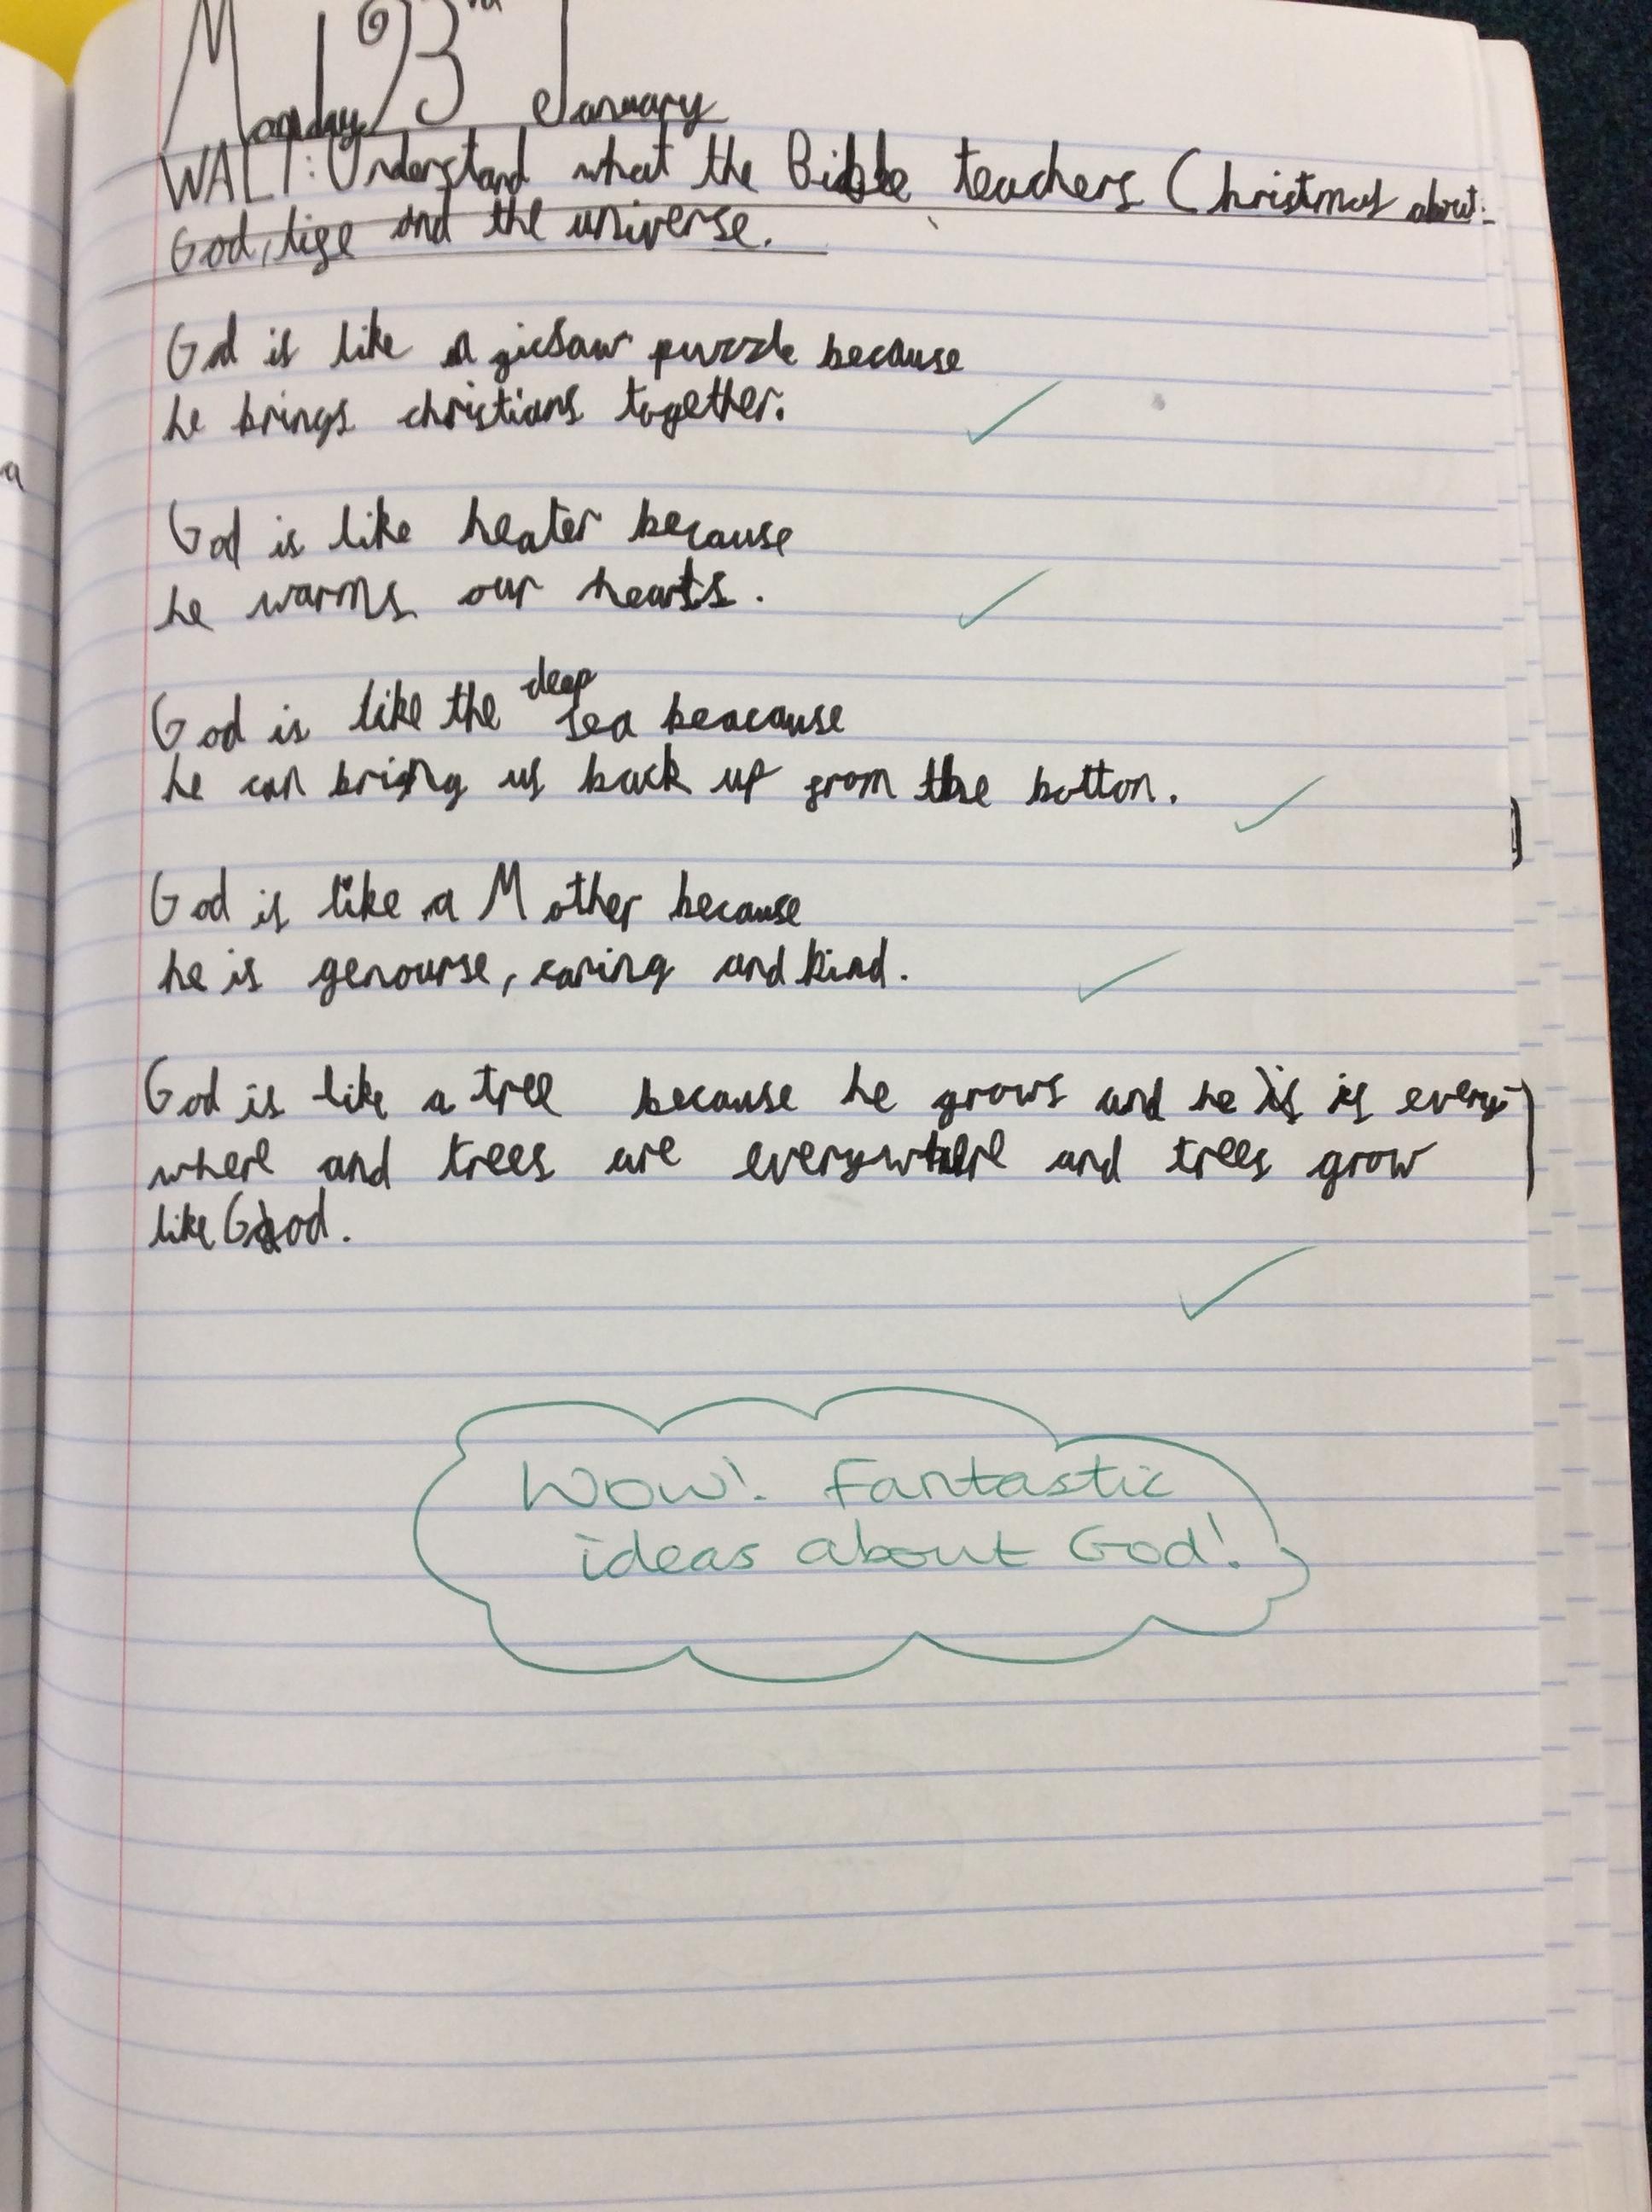 Monday 23rd January
WALT: Understand what the Bible teachers Christmas about:
God, life and the universe.
God is like a jicsaw puzzle because
he brings christians together.
God is like heater because
he warms our hearts.
God is like the deep sea beacause
he can bring us back up from the botton.
God is like a Mother because
he is genourse, caring and kind.
God is like a tree because he grows and he is is every
where and trees are everywhere and trees grow
like God.
Wow! Fantastic
ideas about God!
a